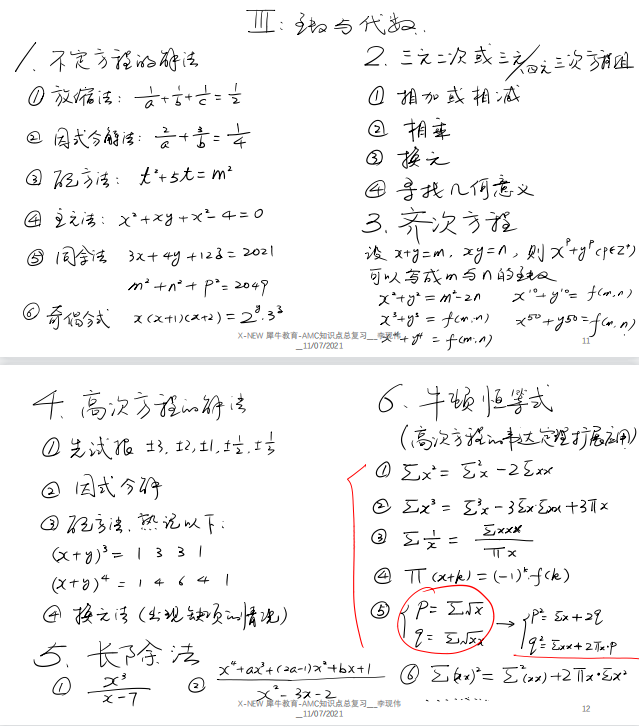 III: 数与代数.
1. 不定方程的解法
① 放缩法: 1/a + 1/b + 1/c = 1/2
② 因式分解法: 2/a + 3/b = 1/4
③ 配方法: t²+5t=m²
④ 主元法: x²+xy+x²-4=0
⑤ 同余法 3x+4y+123=2021
m²+n²+p²=2049
⑥ 奇偶分式 x(x+1)(x+2)=2^y·3³
2. 三元二次或三元/四元三次方程组
① 相加或相减
② 相乘
③ 换元
④ 寻找几何意义
3. 齐次方程
设 x+y=m, xy=n, 则 x^p+y^p (p∈Z⁺)
可以写成m与n的
x²+y²=m²-2n x¹⁰+y¹⁰=f(m,n)
x³+y³=f(m,n) x⁵⁰+y50=f(m,n)
x⁴+y⁴=f(m,n)
X-NEW 犀牛教育-AMC知识点总复习__李现伟
_11/07/2021
11
4. 高次方程的解法
① 先试根 ±3, ±2, ±1, ±1/2, ±1/3
② 因式分解
③ 配方法, 熟记以下:
(x+y)³= 1 3 3 1
(x+y)⁴= 1 4 6 4 1
④ 换元法 (出现缺项的情况)
5. 长除法
① x³/(x-7) ② (x⁴+ax³+(2a-1)x²+bx+1)/(x²-3x-2)
6. 牛顿恒等式
(高次方程的韦达定理扩展应用)
① Σx²=Σ²x-2Σxx
② Σx³=Σ³x-3Σx·Σxx+3πx
③ Σ1/x = Σxxx/πx
④ π(x+k)=(-1)^k·f(k)
⑤ { p=Σ√x → { p²=Σx+2q
q=Σ√xx q²=Σxx+2πx·p
⑥ Σ(xx)²=Σ²(xx)+2πx·Σx²
........
X-NEW 犀牛教育-AMC知识点总复习__李现伟
_11/07/2021
12